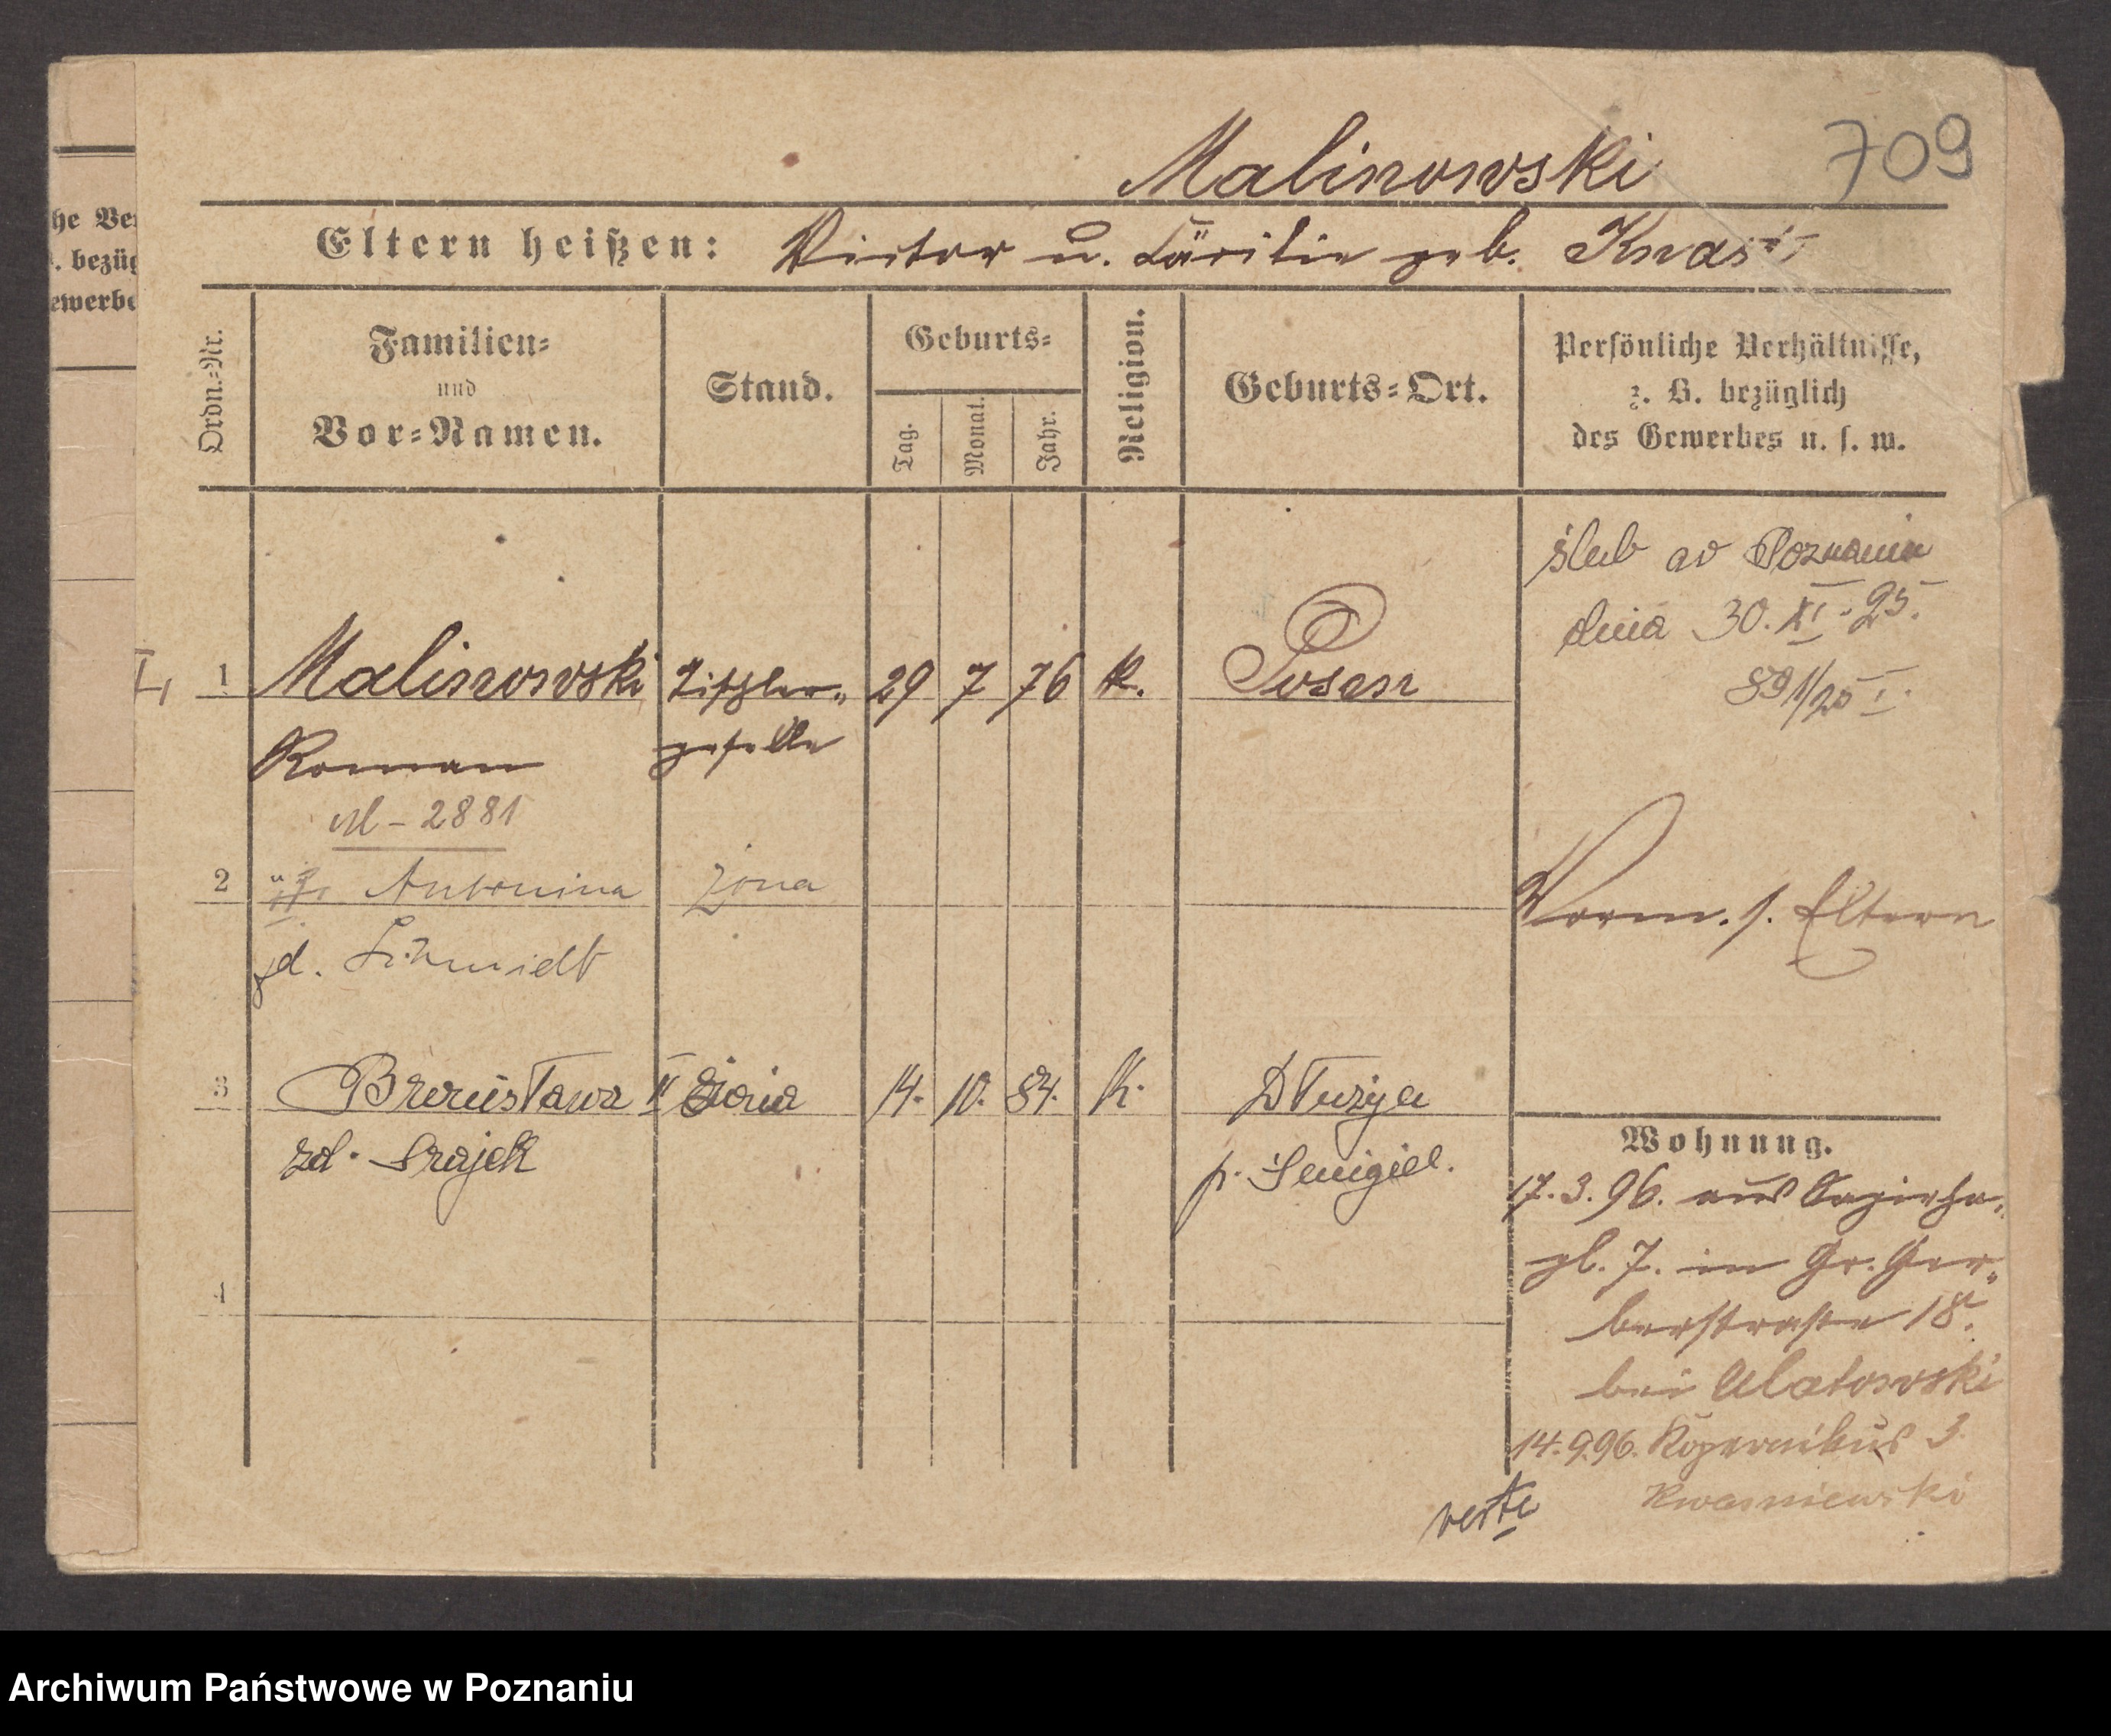 Malinowski
709
Eltern heißen: Victor u. Cäcilie geb. Knast
he Ve
. bezüg
ewerbe
Ordn.-Nr.
Familien-
und
Vor-Namen.
Stand.
Geburts-
Tag.
Monat.
Jahr.
Religion.
Geburts-Ort.
Persönliche Verhältnisse,
z. B. bezüglich
des Gewerbes u. s. w.
ślub w Poznaniu
dnia 30. XI. 25.
891/25 I.
1 Malinowski Tischler- 29 7 76 k. Posen
Roman geselle
2881
2 Antonina żona
Schmidt
Vorm. s. Eltern
3 Bronisława II żona 14. 10. 84. k. Dłużyn
zd. Srajek
p. Śmigiel.
4
Wohnung.
17.3.96. aus Sapieha-
pl. 7. in Gr. Ger-
berstraße 18.
bei Matowski
14.9.96. Kopernikus 3
Kwasniewski
verte
Archiwum Państwowe w Poznaniu